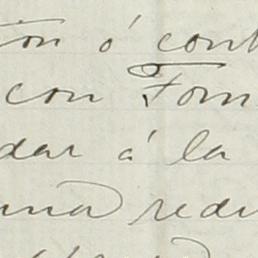 ton ó cont
con Tom
dar á la
una redu